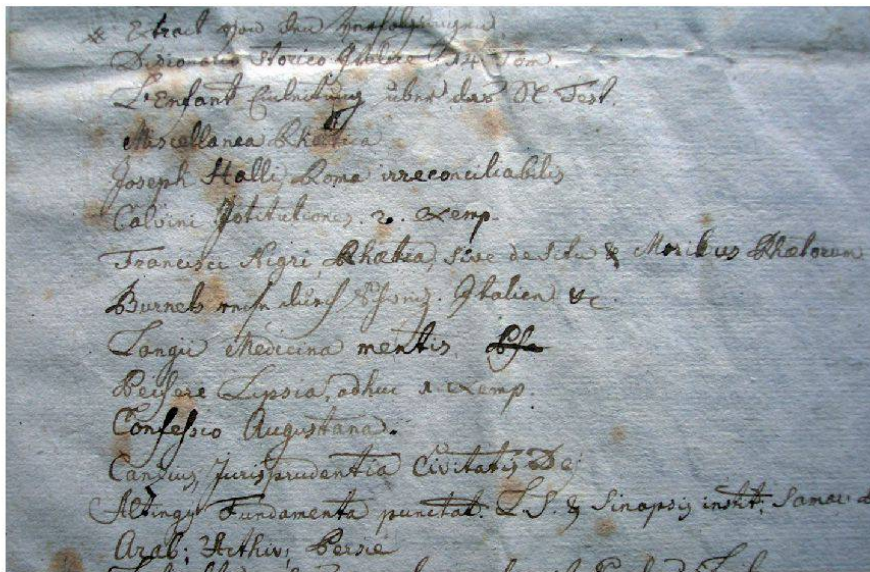 Extract von den
Dizionario Storico 14. Tom.
L'Enfant Einleitung über das N. Test.
Miscellanea Rhætica
Joseph Halli, Roma irreconciliabilis
Calvini Istitutiones. 2. Exemp.
Francisci Nigri, Rhætia, sive de Situ & Moribus Rhætorum
Burnets durch Italien &c.
Langii Medicina mentis.
Lipsia, adhuc 1 Exemp.
Confessio Augustana.
Jurisprudentia Civitatis Dei
Altingy Fundamenta punctat. L.S. & Sinapsis instit; Samar.
Arab; Æthiv; Persic